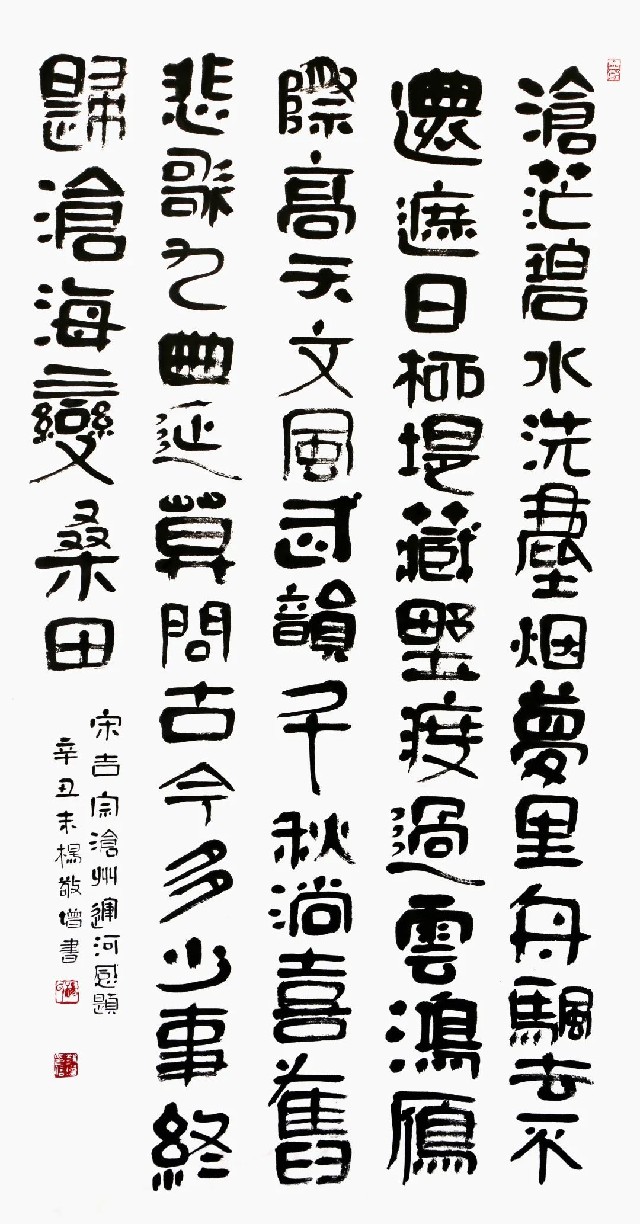 滄茫碧水洗塵烟夢里舟颿去不
還遮日柳堤藏野渡過雲鴻鴈
際高天文風武韻千秋淌喜舊
悲歌九曲延莫問古今多少事終
歸滄海變桑田
宋吉宗滄州運河感題
辛丑末楊敬增書